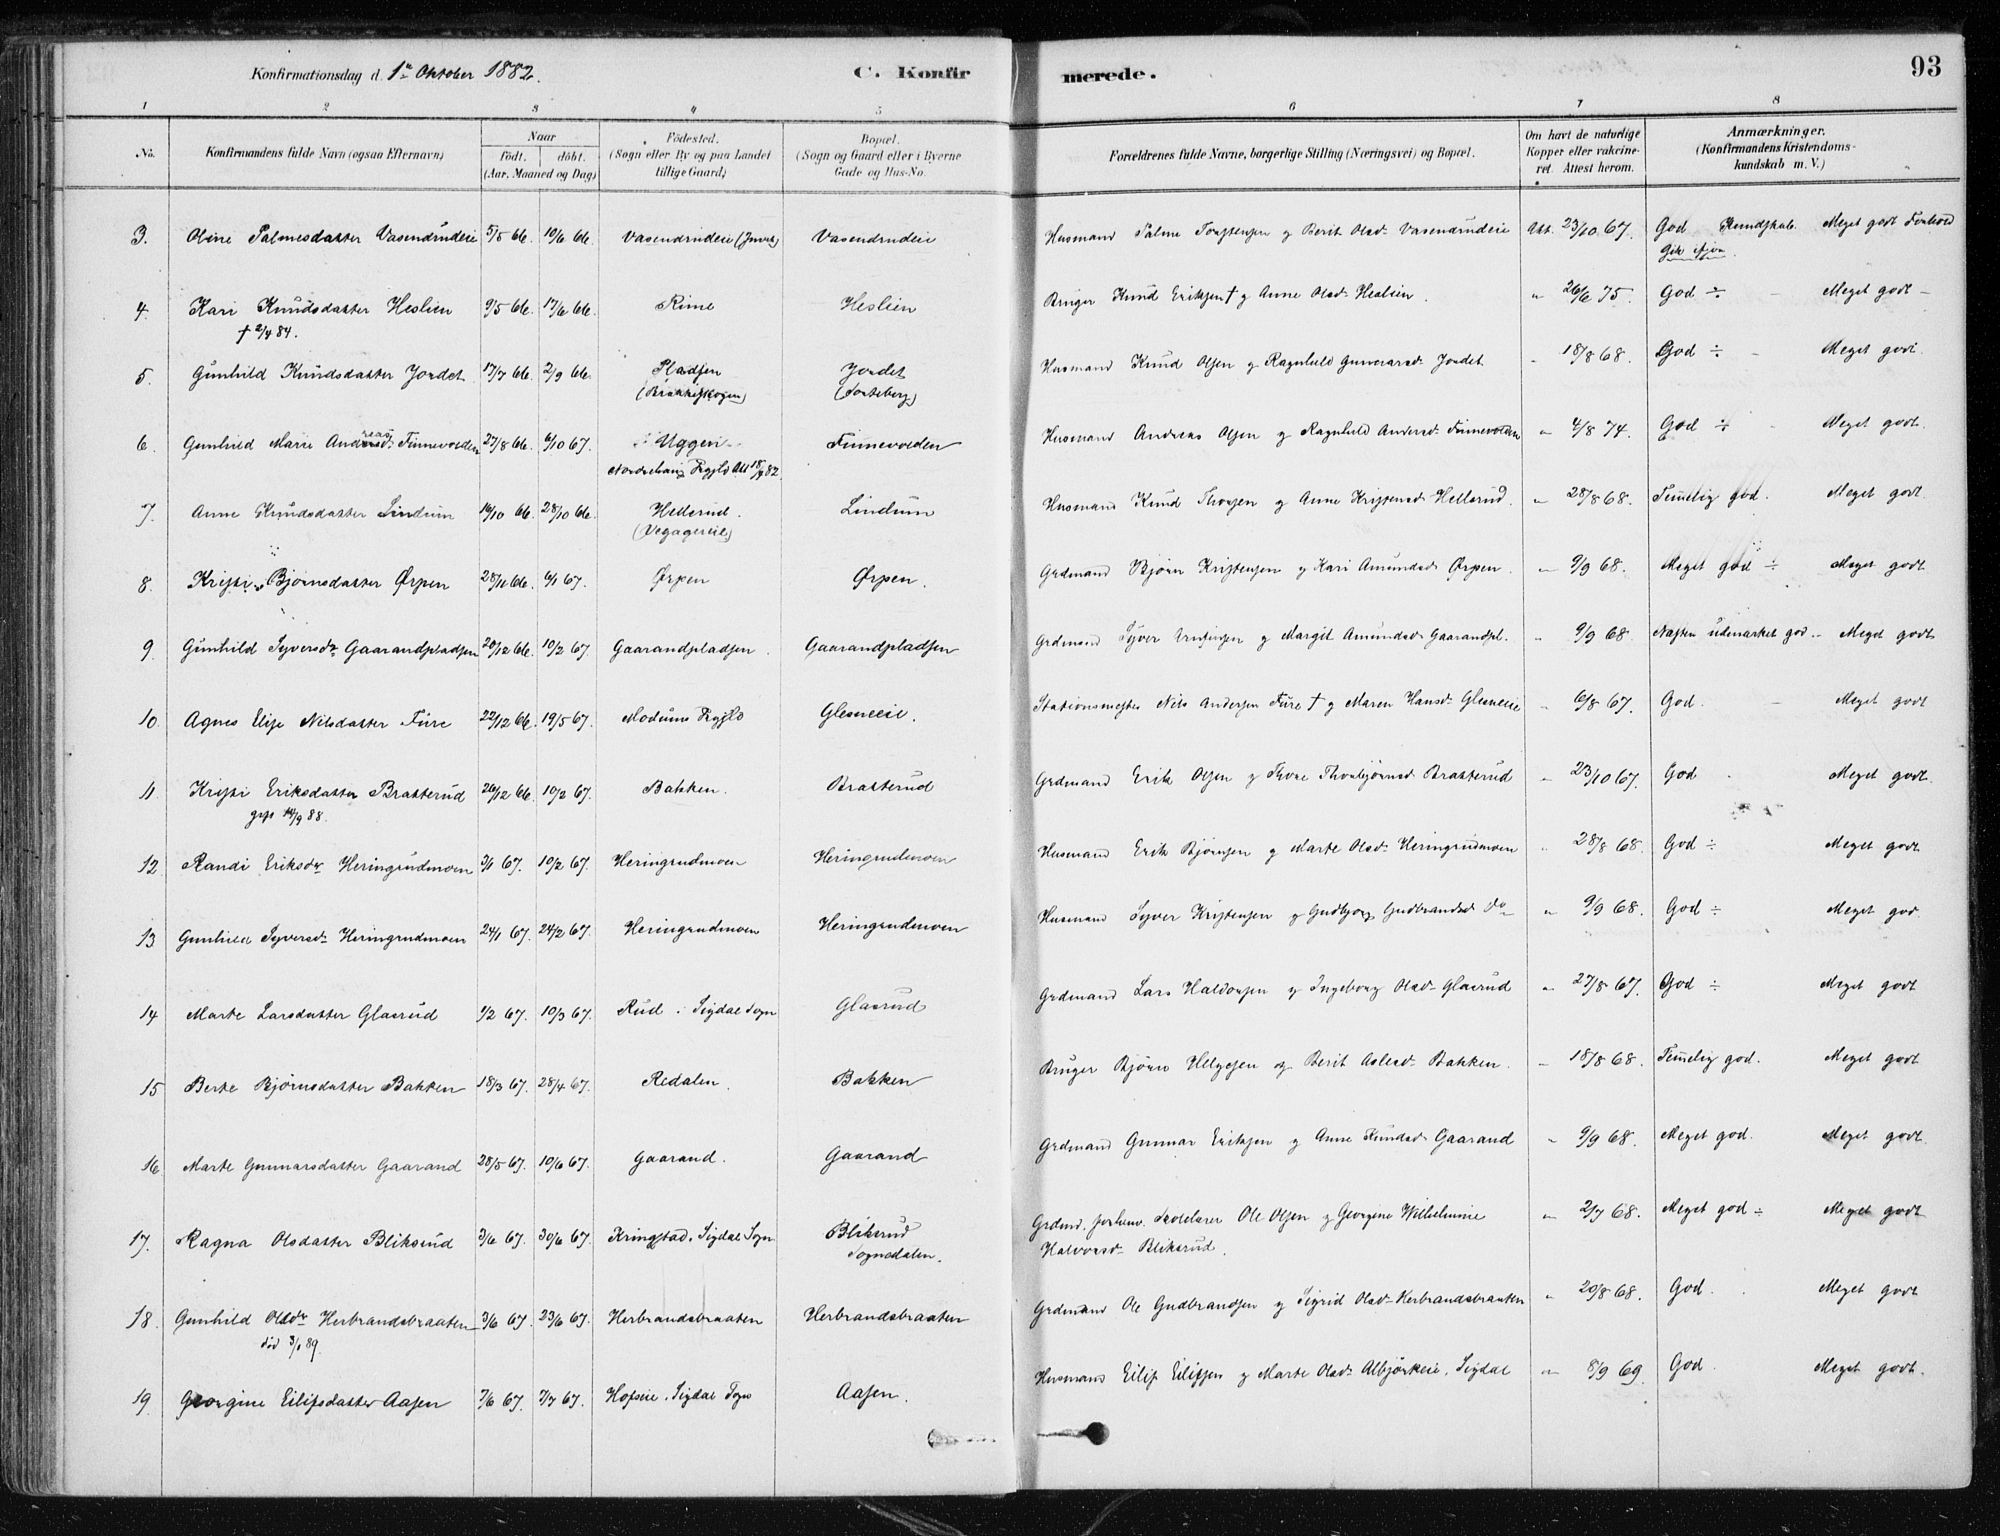 Konfirmationsdag d. 1ste Oktober 1882.
C. Konfirmerede.
93
1 2 3 4 5 6 7 8
No. Konfirmandens fulde Navn (ogsaa Efternavn) Naar født. døbt. (Aar, Maaned og Dag) Fødested. (Sogn eller By og paa Landet tillige Gaard) Bopæl. (Sogn og Gaard eller i Byerne Gade og Hus-No. Forældrenes fulde Navne, borgerlige Stilling (Næringsvei) og Bopæl. Om havt de naturlige Kopper eller vakcineret. Attest herom. Anmærkninger. (Konfirmandens Kristendomskundskab m. V.)
3. Oline Palmesdatter Vasendrudeie 5/5 66. 10/6 66. Vasendrudeie Vasendrudeie Husmand Palme Torstensen og Berit Olsd. Vasendrudeie Att. 23/10 67. God Kundskab. Meget godt Forhold
4. Kari Knudsdatter Heslien 9/5 66. 17/6 66. Rime Heslien Bruger Knud Eriksen † og Anne Olsd. Heslien. " 26/6 75. God ÷ Meget godt
† 2/4 84.
5. Gunhild Knudsdatter Jordet 17/7 66. 2/9 66. Pladsen Jordet Husmand Knud Olsen og Ragnhild Gunnarsd. Jordet " 18/8 68. God ÷ Meget godt
6. Gunhild Marie Finnevolden 27/8 66. 6/10 67. Uggen Finnevolden Husmand Andreas Olsen og Ragnhild Andersd. Finnevolden " 4/8 74. God ÷ Meget godt.
7. Anne Knudsdatter Lindum 16/10 66. 28/10 66. Hellerud Lindum Husmand Knud Thorsen og Anne Kristensd. Hellerud. " 28/8 68. Temmelig god. Meget godt
8. Kristi Bjørnsdatter Ørpen 28/11 66. 6/1 67. Ørpen Ørpen. Grdmand Bjørn Kristensen og Kari Amundsd. Ørpen. " 9/9 68. Meget god ÷ Meget godt
9. Gunhild Syversdr Gaarandpladsen 20/12 66. 10/2 67. Gaarandpladsen. Gaarandpladsen Grdmand Syver Arnesen og Margit Amundsd. Gaarandpl. " 9/9 68. Næsten udmærket god. Meget godt
10. Agnes Elise Nilsdatter Fure 22/12 66. 19/5 67. Modums Prgjld Glesneeie. Stationsmester Nils Andersen Fure † og Maren Hansd. Glesneeie " 6/8 67. God. Meget godt
11. Kristi Eriksdatter Bratterud 26/12 66. 10/2 67. Bakken. Bratterud Grdmand Erik Olsen og Thore Thorbjørnsd. Bratterud " 23/10 67. God Meget godt.
12 Randi Eriksdr Heringrudmoen 3/1 67. 10/2 67. Heringrudmoen Heringrudmoen Husmand Erik Bjørnsen og Marte Olsd. Heringrudmoen " 28/8 68. God ÷ Meget godt
13 Gunhild Syversdr Heringrudmoen 24/1 67. 24/2 67. Heringrudmoen Heringrudmoen Husmand Syver Kristensen og Gudbjørg Gudbrandsd. do " 9/9 68. God ÷ Meget god.
14 Marte Larsdatter Glasrud 1/2 67. 10/3 67. Rud i Sigdal Sogn Glasrud Grdmand Lars Haldorsen og Ingeborg Olsd. Glasrud " 27/8 67. God ÷ Meget godt
15 Berte Bjørnsdatter Bakken 18/3 67. 28/4 67. Redalen. Bakken Bruger Bjørn Helgesen og Berit Aslesd. Bakken. " 18/8 68. Temmelig god. Meget godt
16 Marte Gunnarsdatter Gaarand 28/5 67. 10/6 67. Gaarand. Gaarand Grdmand Gunnar Eriksen og Anne Knudsd. Gaarand " 9/9 68. Meget god. Meget godt.
17. Ragna Olsdatter Bliksrud 3/6 67. 30/6 67. Kringstad, Sigdal Sogn Bliksrud Sognedalen. Grdmd. forhenv. Skolelærer Ole Olsen og Georgine Wilhelmine Halvorsd. Bliksrud. " 2/7 68. Meget god ÷ Meget godt
18. Gunhild Olsdr Herbrandsbraaten 3/6 67. 23/6 67. Herbrandsbraaten Herbrandsbraaten Grdmand Ole Gudbrandsen og Sigrid Olsd. Herbrandsbraaten " 20/8 68. God. Meget godt
død 3/1 89.
19 Georgine Eilifsdatter Aasen 7/6 67. 7/7 67. Hofseie, Sigdal Sogn Aasen. Husmand Eilif Eilifsen og Marte Olsd. Albjørkeie, Sigdal " 8/9 69. God. Meget godt.